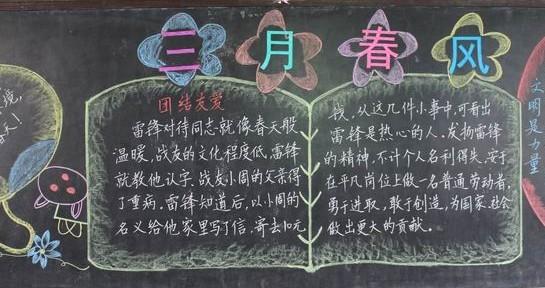 三月春风
团结友爱
雷锋对待同志就像春天般
温暖,战友的文化程度低,雷锋
就教他认字.战友小周的父亲得
了重病.雷锋知道后.以小周的
名义给他家里写了信.寄去10元
钱.从这几件小事中,可看出
雷锋是热心的人.发扬雷锋
的精神.不计个人名利得失.安于
在平凡岗位上做一名普通劳动者,
勇于进取,敢于创造,为国家.社会
做出更大的贡献.
文明是力量